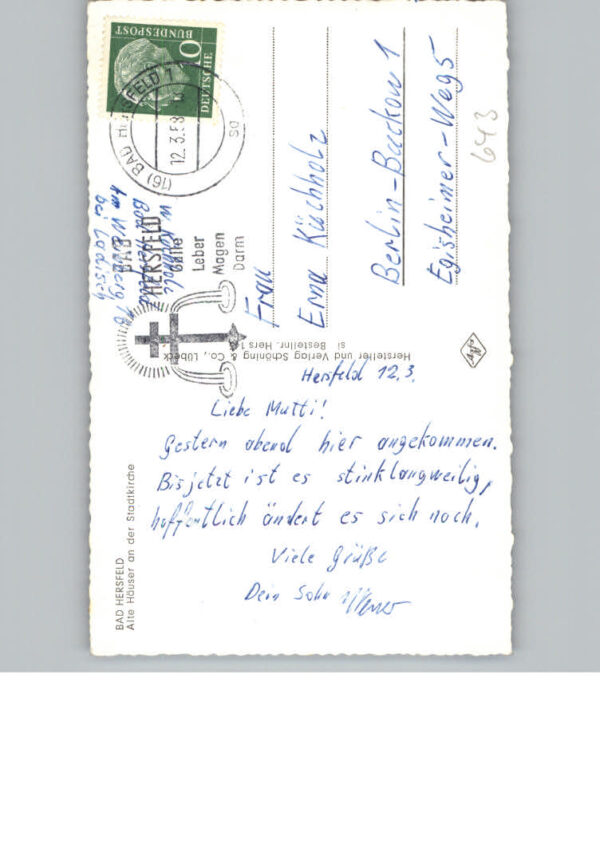 BAD HERSFELD
Alte Häuser an der Stadtkirche
Hersfeld 12.3.
Liebe Mutti!
Gestern abend hier angekommen.
Bis jetzt ist es stinklangweilig,
hoffentlich ändert es sich noch.
Viele Grüße
Dein Sohn Werner
Hersteller und Verlag Schöning & Co., Lübeck
si Bestellnr. Hers 1
Agfa
DEUTSCHE
BUNDESPOST
(16) BAD HERSFELD 1
12.3.58
BAD
HERSFELD
Galle
Leber
Magen
Darm
W. Küchholz
Bad Hersfeld
Am
bei
Frau
Erna Küchholz
Berlin-Buckow 1
Egisheimer-Weg 5
643